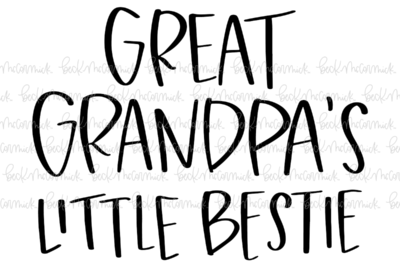 GREAT
GRANDPA'S
LITTLE BESTIE